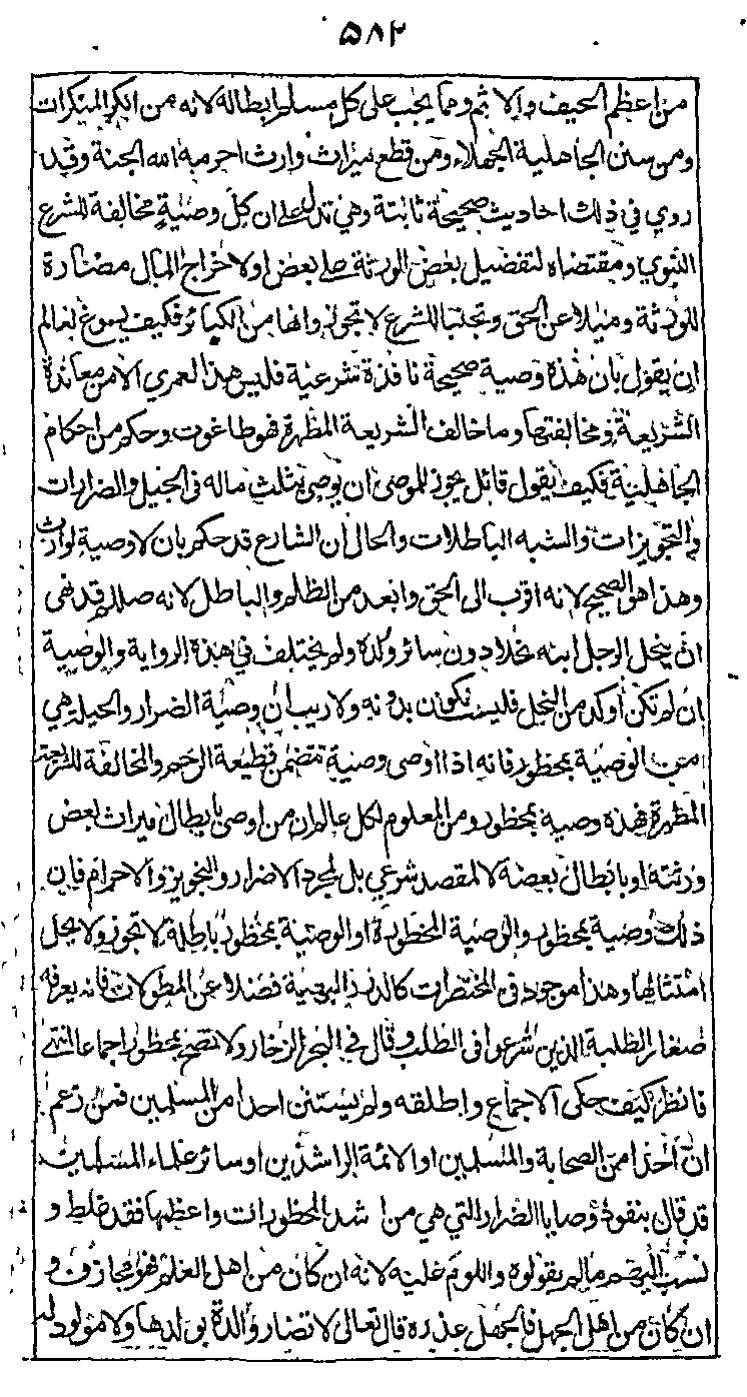 ۵۸۲
من اعظم الحيف والاثم ومما يجب على كل مسلم ابطاله لانه من انكر المنكرات
ومن سنن الجاهلية الجهلاء ومن قطع ميراث وارث احرمه الله الجنة وقد
روي في ذلك احاديث صحيحة ثابتة وهي تدل على ان كل وصية مخالفة للشرع
النبوي ومقتضاه لتفضيل بعض الورثة على بعض او لاخراج المال مضارة
للورثة وميلا عن الحق وتجنبا للشرع لا تجوز وانها من الكبائر فكيف يسوغ لعالم
ان يقول بان هذه وصية صحيحة نافذة شرعية فليس هذا لعمري الا من معاندة
الشريعة ومخالفتها وما خالف الشريعة المطهرة فهو طاغوت وحكم من احكام
الجاهلية فكيف يقول قائل يجوز للموصي ان يوصي بثلث ماله في الحيل والضرارات
والتجويزات والشبه الباطلات والحال ان الشارع قد حكم بان لا وصية لوارث
وهذا هو الصحيح لانه اقرب الى الحق وابعد من الظلم والباطل لانه صللم قد نهى
ان ينحل الرجل ابنه نحلا دون سائر ولده ولم يختلف في هذه الرواية والوصية
ان لم تكن أوكد من النحل فليست تكون بدونه ولا ريب ان وصية الضرار والحيلة هي
من الوصية بمحظور فانه اذا اوصى وصية تتضمن قطيعة الرحم والمخالفة للشريعة
المطهرة فهذه وصية بمحظور ومن المعلوم لكل عالم ان من اوصى بابطال ميراث بعض
ورثته او بابطال بعضه لا لمقصد شرعي بل لمجرد الاضرار والتجويز والاحرام فان
ذلك وصية بمحظور والوصية المحظورة او الوصية بمحظور باطلة لا تجوز ولا يحل
امتثالها وهذا موجود في المختصرات كالدرر البهية فضلا عن المطولات فانه يعرفه
صغار الطلبة الذين شرعوا في الطلب وقال في البحر الزخار ولا تصح بمحظور اجماعا انتهى
فانظر كيف حكى الاجماع واطلقه ولم يستثن احدا من المسلمين فمن زعم
ان احدا من الصحابة والمسلمين او الائمة الراشدين او سائر علماء المسلمين
قد قال بنفوذ وصايا الضرار التي هي من اشد المحظورات واعظمها فقد غلط و
نسب اليهم ما لم يقولوه واللوم عليه لانه ان كان من اهل العلم فهو مجازف و
ان كان من اهل الجهل فالجهل عذره قال تعالى لا تضار والدة بولدها ولا مولود له